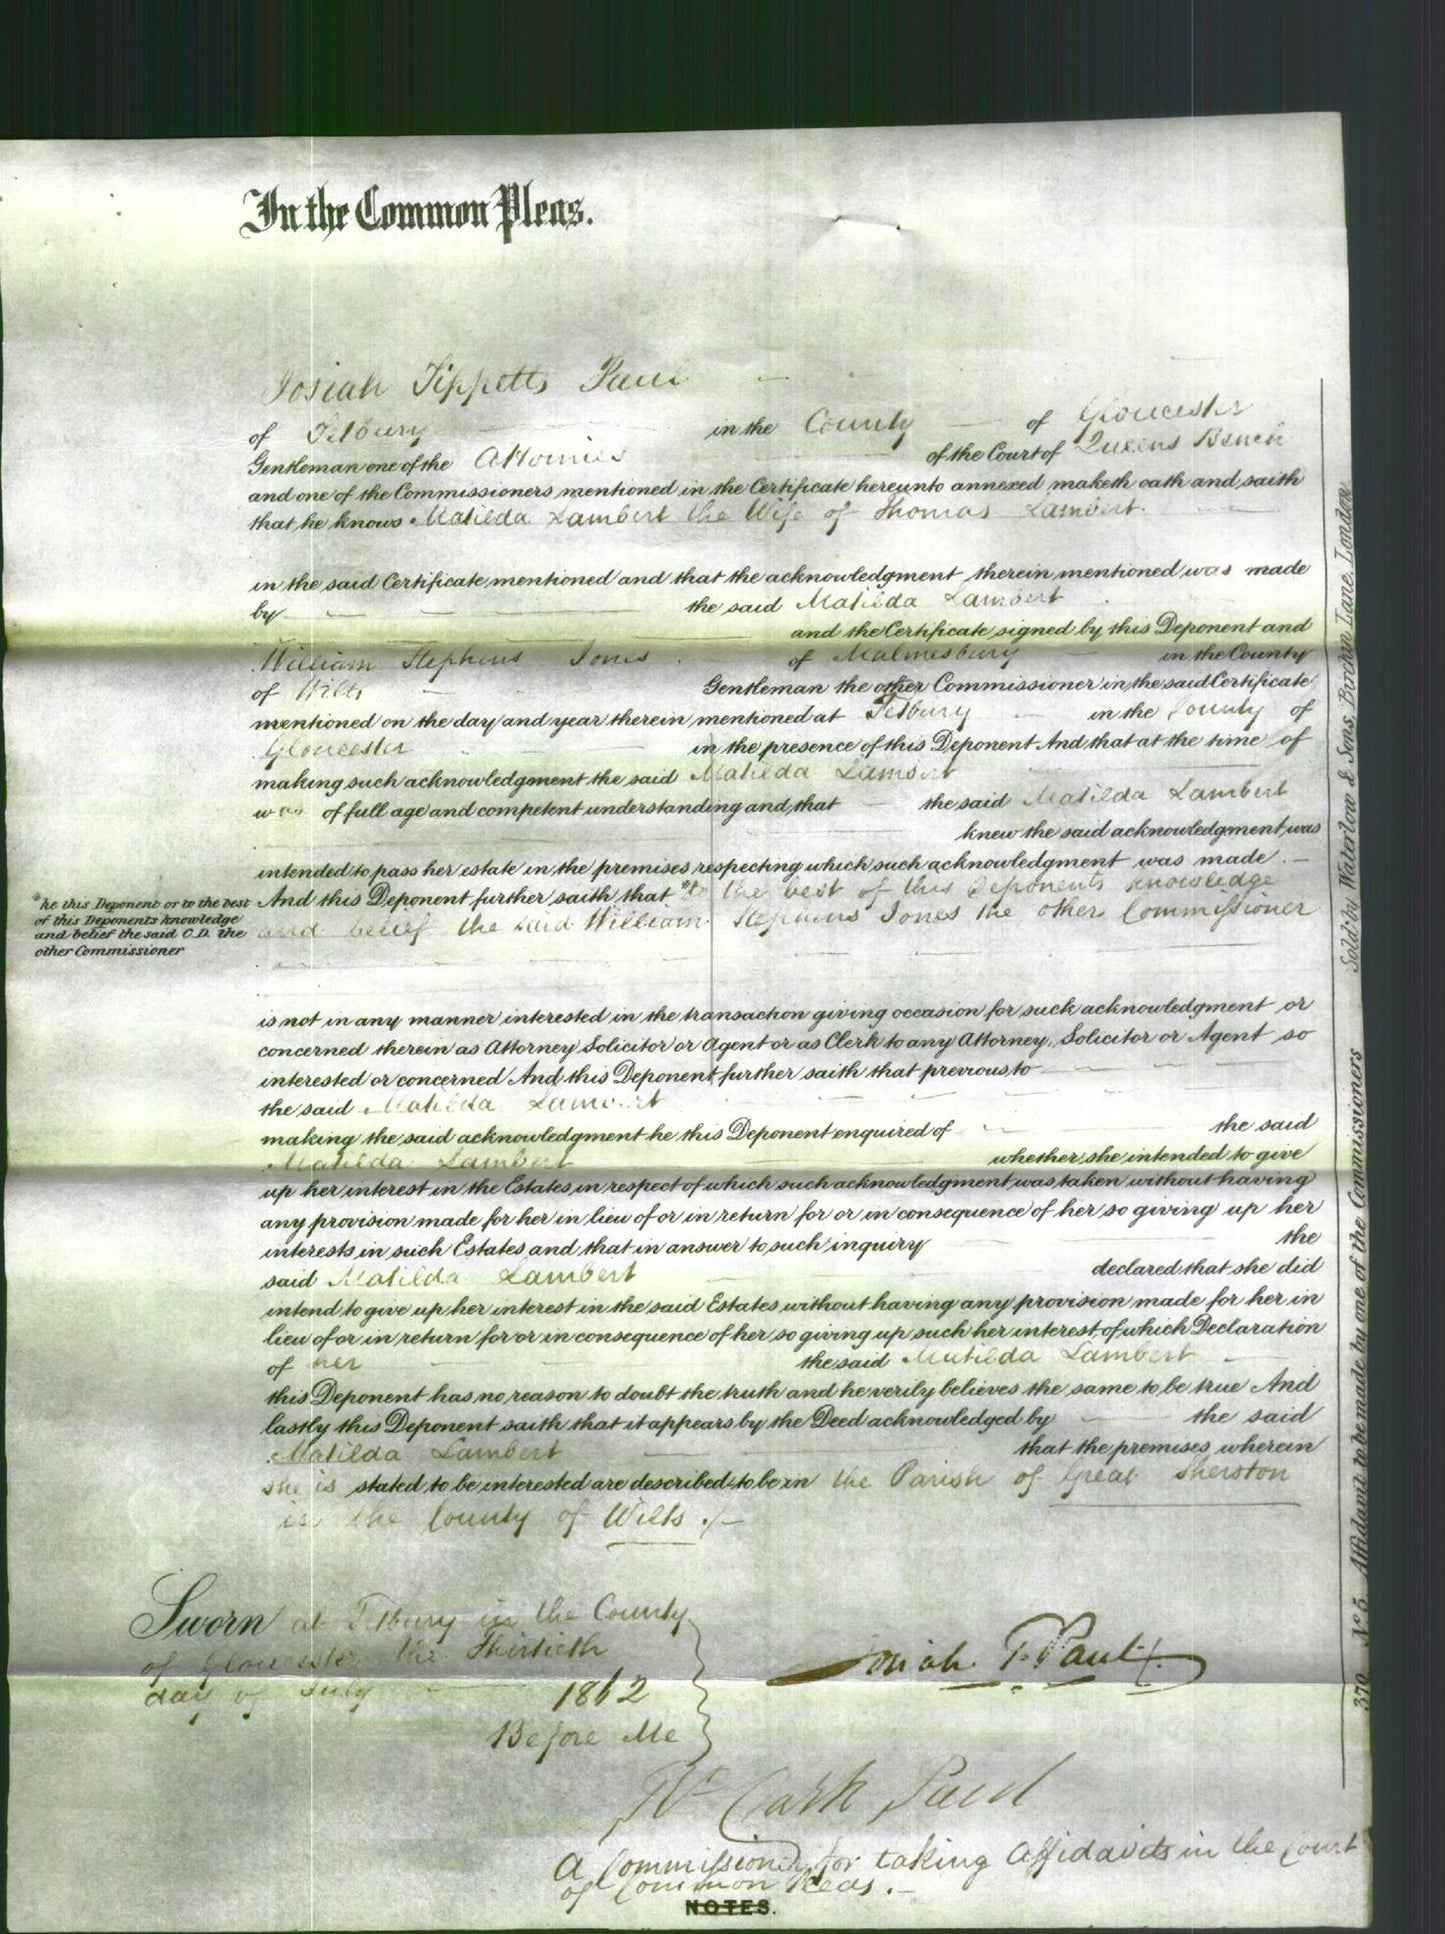 In the Common Pleas.
Josiah Tippetts Paul
of Tetbury in the County of Gloucester
Gentleman one of the Attornies of the Court of Queens Bench
and one of the Commissioners mentioned in the Certificate hereunto annexed maketh oath and saith
that he knows Matilda Lambert the Wife of Thomas Lambert
in the said Certificate mentioned and that the acknowledgment therein mentioned was made
by the said Matilda Lambert
and the Certificate signed by this Deponent and
William Stephens Jones of Malmesbury in the County
of Wilts Gentleman the other Commissioner in the said Certificate
mentioned on the day and year therein mentioned at Tetbury in the County of
Gloucester in the presence of this Deponent And that at the time of
making such acknowledgment the said Matilda Lambert
was of full age and competent understanding and that the said Matilda Lambert
knew the said acknowledgment was
intended to pass her estate in the premises respecting which such acknowledgment was made.
And this Deponent further saith that *to the best of this Deponents knowledge
and belief the said William Stephens Jones the other Commissioner
*he this Deponent or to the best
of this Deponents knowledge
and belief the said C.D. the
other Commissioner
is not in any manner interested in the transaction giving occasion for such acknowledgment or
concerned therein as Attorney Solicitor or Agent or as Clerk to any Attorney, Solicitor or Agent so
interested or concerned And this Deponent further saith that previous to
the said Matilda Lambert
making the said acknowledgment he this Deponent enquired of the said
Matilda Lambert whether she intended to give
up her interest in the Estates in respect of which such acknowledgment was taken without having
any provision made for her in lieu of or in return for or in consequence of her so giving up her
interests in such Estates and that in answer to such inquiry the
said Matilda Lambert declared that she did
intend to give up her interest in the said Estates without having any provision made for her in
lieu of or in return for or in consequence of her so giving up such her interest of which Declaration
of her the said Matilda Lambert
this Deponent has no reason to doubt the truth and he verily believes the same to be true And
lastly this Deponent saith that it appears by the Deed acknowledged by the said
Matilda Lambert that the premises wherein
she is stated to be interested are described to be in the Parish of Great Sherston
in the County of Wilts
Sworn at Tetbury in the County
of Gloucester the Thirtieth
day of July 1862
Before Me
Josiah T. Paul
Paul
A Commissioner for taking Affidavits in the Court
of Common Pleas.
NOTES.
370 No. 5. Affidavit to be made by one of the Commissioners Sold by Waterlow & Sons, Birchin Lane, London